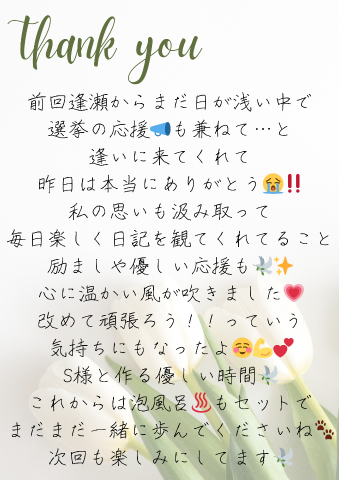 thank you
前回逢瀬からまだ日が浅い中で
選挙の応援📣も兼ねて…と
逢いに来てくれて
昨日は本当にありがとう😭‼️
私の思いも汲み取って
毎日楽しく日記を観てくれてること
励ましや優しい応援も🕊️✨
心に温かい風が吹きました💗
改めて頑張ろう！！っていう
気持ちにもなったよ☺️💪💕
S様と作る優しい時間🕊️
これからは泡風呂♨️もセットで
まだまだ一緒に歩んでくださいね🐾
次回も楽しみにしてます🕊️